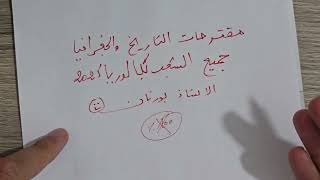 مقترحات التاريخ والجغرافيا
جميع الشعب بكالوريا
الاستاذ بورنان